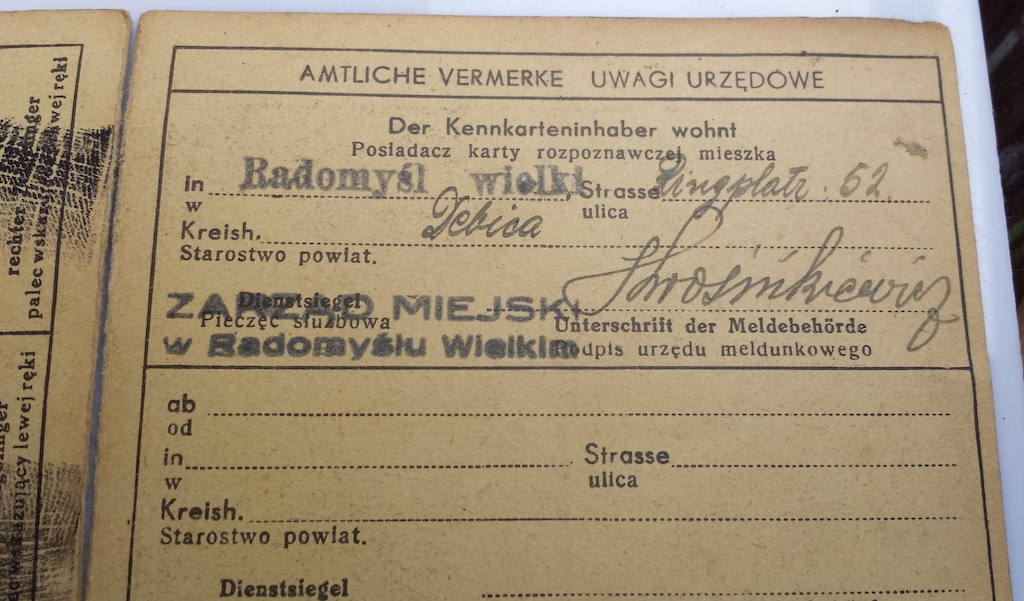 AMTLICHE VERMERKE UWAGI URZĘDOWE
Der Kennkarteninhaber wohnt
Posiadacz karty rozpoznawczej mieszka
in Radomyśl wielki, Strasse Ringplatz 52
w ulica
Kreish. Debica
Starostwo powiat.
Dienstsiegel
ZARZĄD MIEJSKI
Pieczęć służbowa
Unterschrift der Meldebehörde
w Radomyślu Wielkim
Podpis urzędu meldunkowego
ab
od
in Strasse
w ulica
Kreish.
Starostwo powiat.
Dienstsiegel
rechter
palec wskaz
lewej ręki
wskazujący lewej ręki